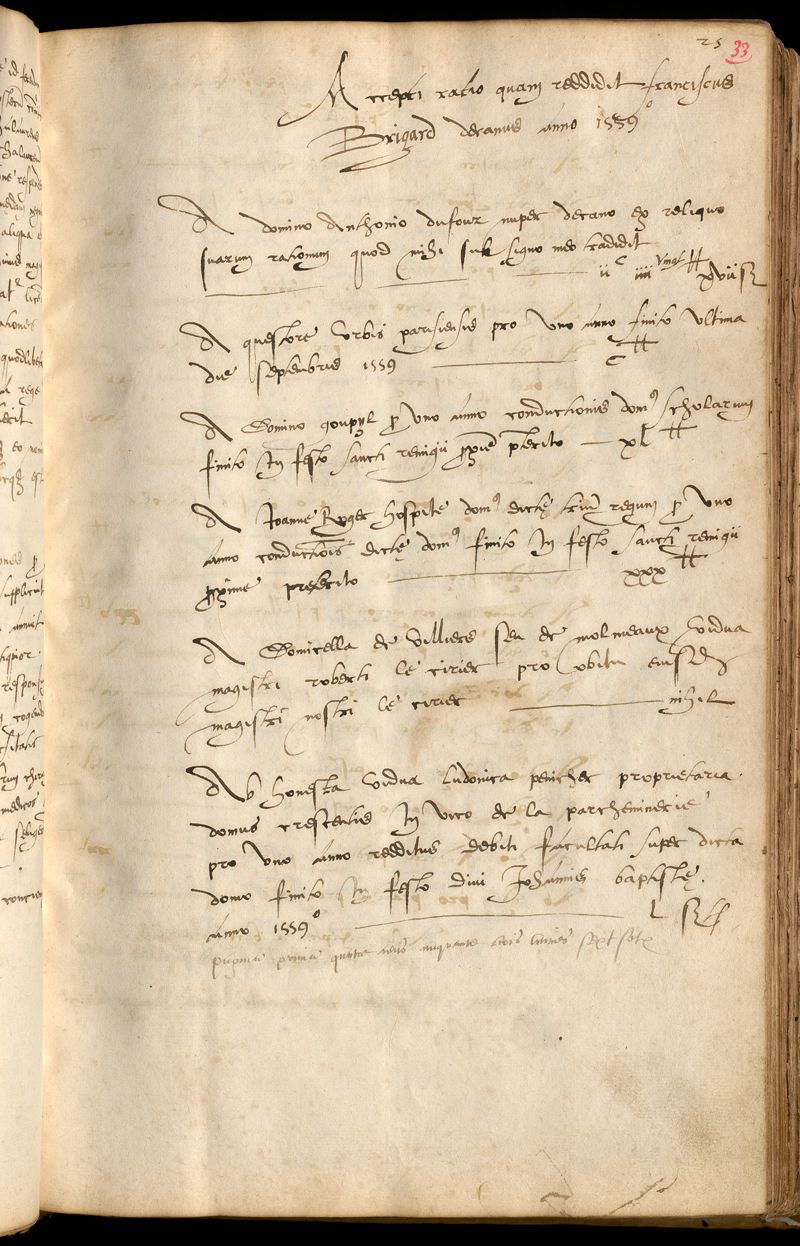 25 33
Accepti ratio quam reddidit franciscus
Brigard decanus anno 1559°
A domino Anthonio dufour nuper decano ex reliquo
suarum rationum quod mihi sub signo meo tradidit
ii c iiii vingt ₶ xvii s
A questore urbis parisiensis pro uno anno finito ultima
die septembris 1559 c ₶
A Domino goupyl pro uno anno conductionis dom9 scholarum
finito In festo sancti remigii prterito xl ₶
A Joanne Roger hospite dom9 dictę trium regum p uno
anno conductiōis dictę dom9 finito In festo sancti remigii
proxime preterito xxx ₶
A Domicella de Villiers seu de molmeaux vidua
magistri roberti le cirier pro obitu eiusd
magistri nostri le cirier nihil
Ab honesta vidua ludovica penicher proprietaria
domus crescentis In vico de la parcheminerie
pro uno anno redditus debiti facultati super dicta
domo finito In festo divi Johannis baptistę
anno 1559° l s
pagina prima